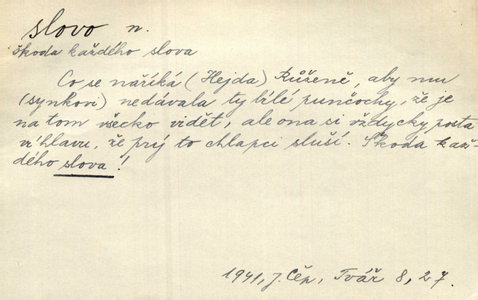 slovo n.
škoda každého slova
Co se naříká (Hejda) Růženě, aby mu
(synkovi) nedávala ty bílé punčochy, že je
na tom všecko vidět, ale ona si vždycky posta
ví hlavu, že prý to chlapci sluší. Škoda kaž-
dého slova!
1941, J. Čep, Tvář 8, 27